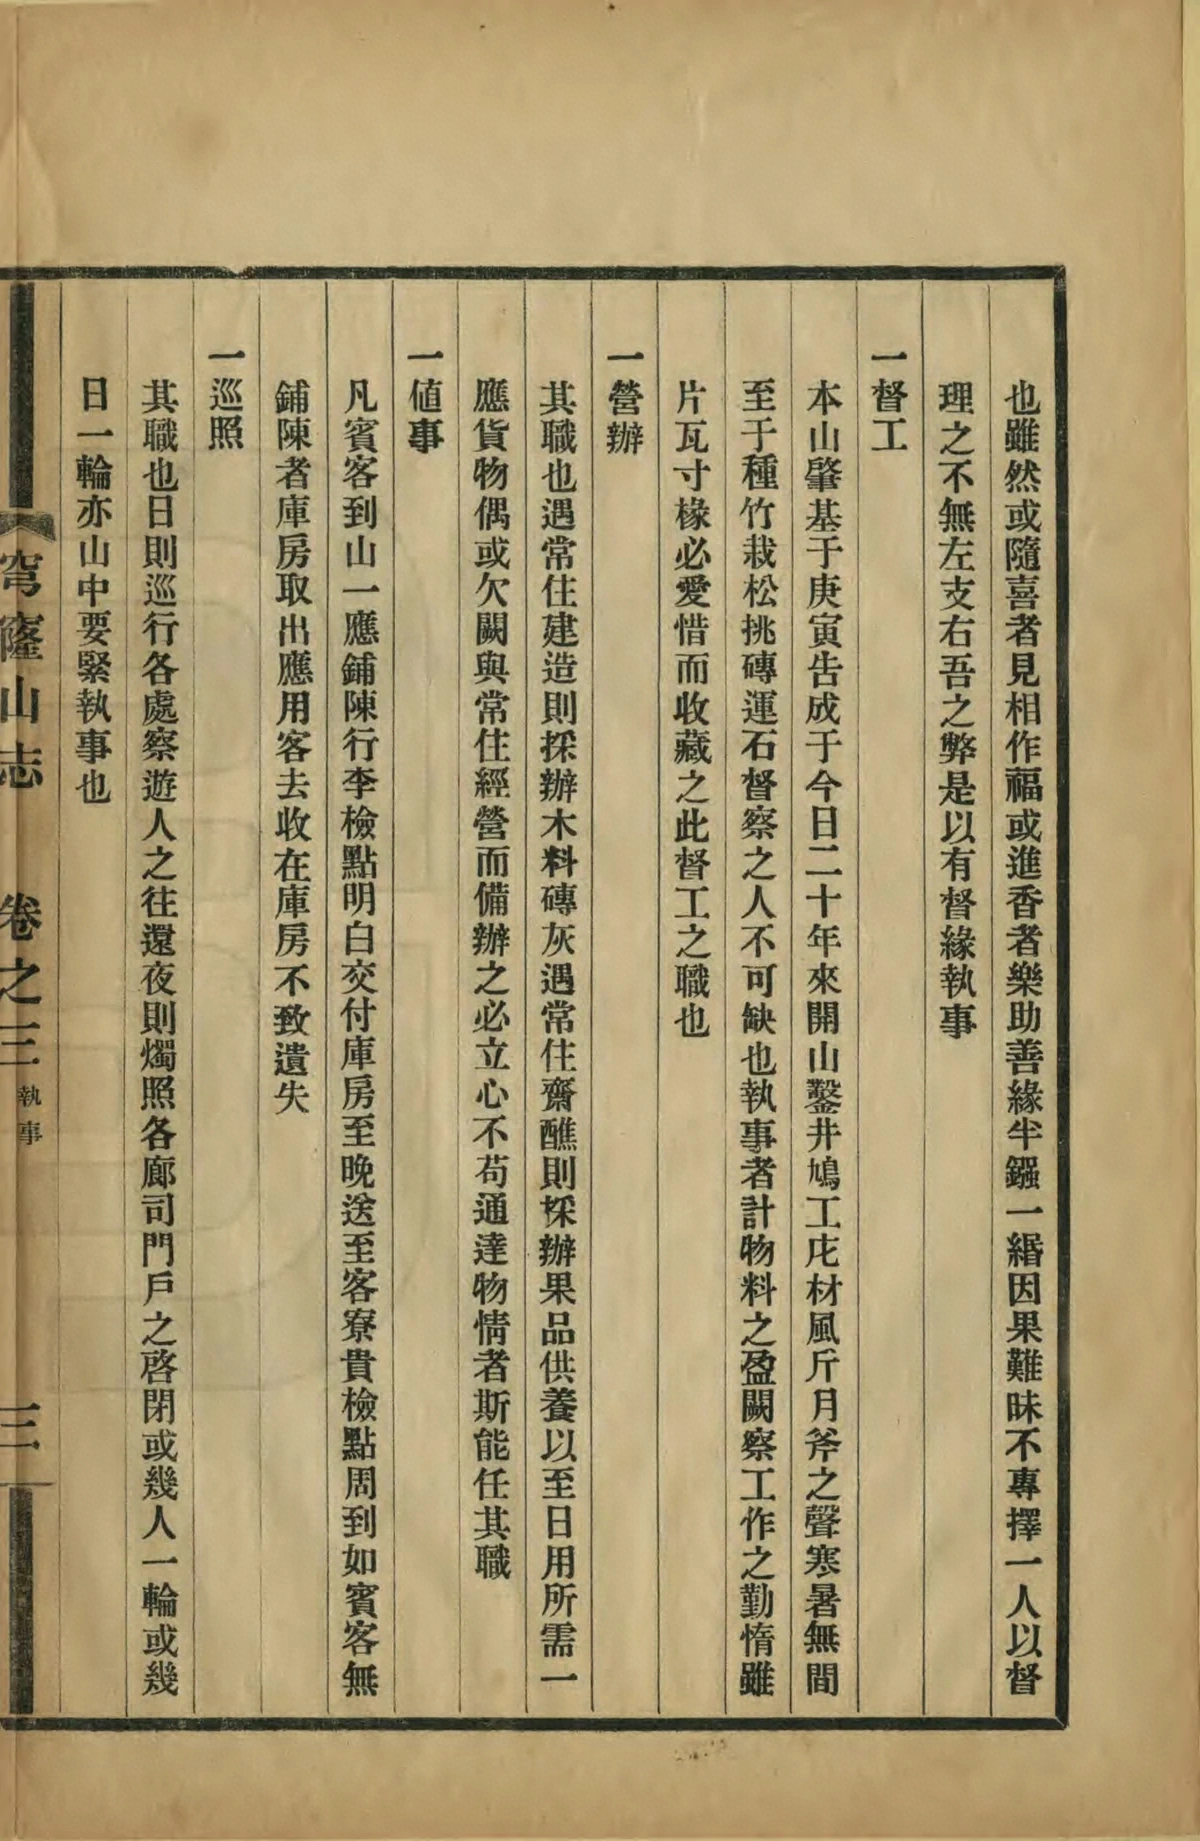 也雖然或隨喜者見相作福或進香者樂助善緣半鏹一緡因果難昧不專擇一人以督
理之不無左支右吾之弊是以有督緣執事
一督工
本山肇基于庚寅告成于今日二十年來開山鑿井鳩工庀材風斤月斧之聲寒暑無間
至于種竹栽松挑磚運石督察之人不可缺也執事者計物料之盈闕察工作之勤惰雖
片瓦寸椽必愛惜而收藏之此督工之職也
一營辦
其職也遇常住建造則採辦木料磚灰遇常住齋醮則採辦果品供養以至日用所需一
應貨物偶或欠闕與常住經營而備辦之必立心不苟通達物情者斯能任其職
一值事
凡賓客到山一應鋪陳行李檢點明白交付庫房至晚送至客寮貴檢點周到如賓客無
鋪陳者庫房取出應用客去收在庫房不致遺失
一巡照
其職也日則巡行各處察遊人之往還夜則燭照各廊司門戶之啓閉或幾人一輪或幾
日一輪亦山中要緊執事也
穹窿山志 卷之三 執事 三